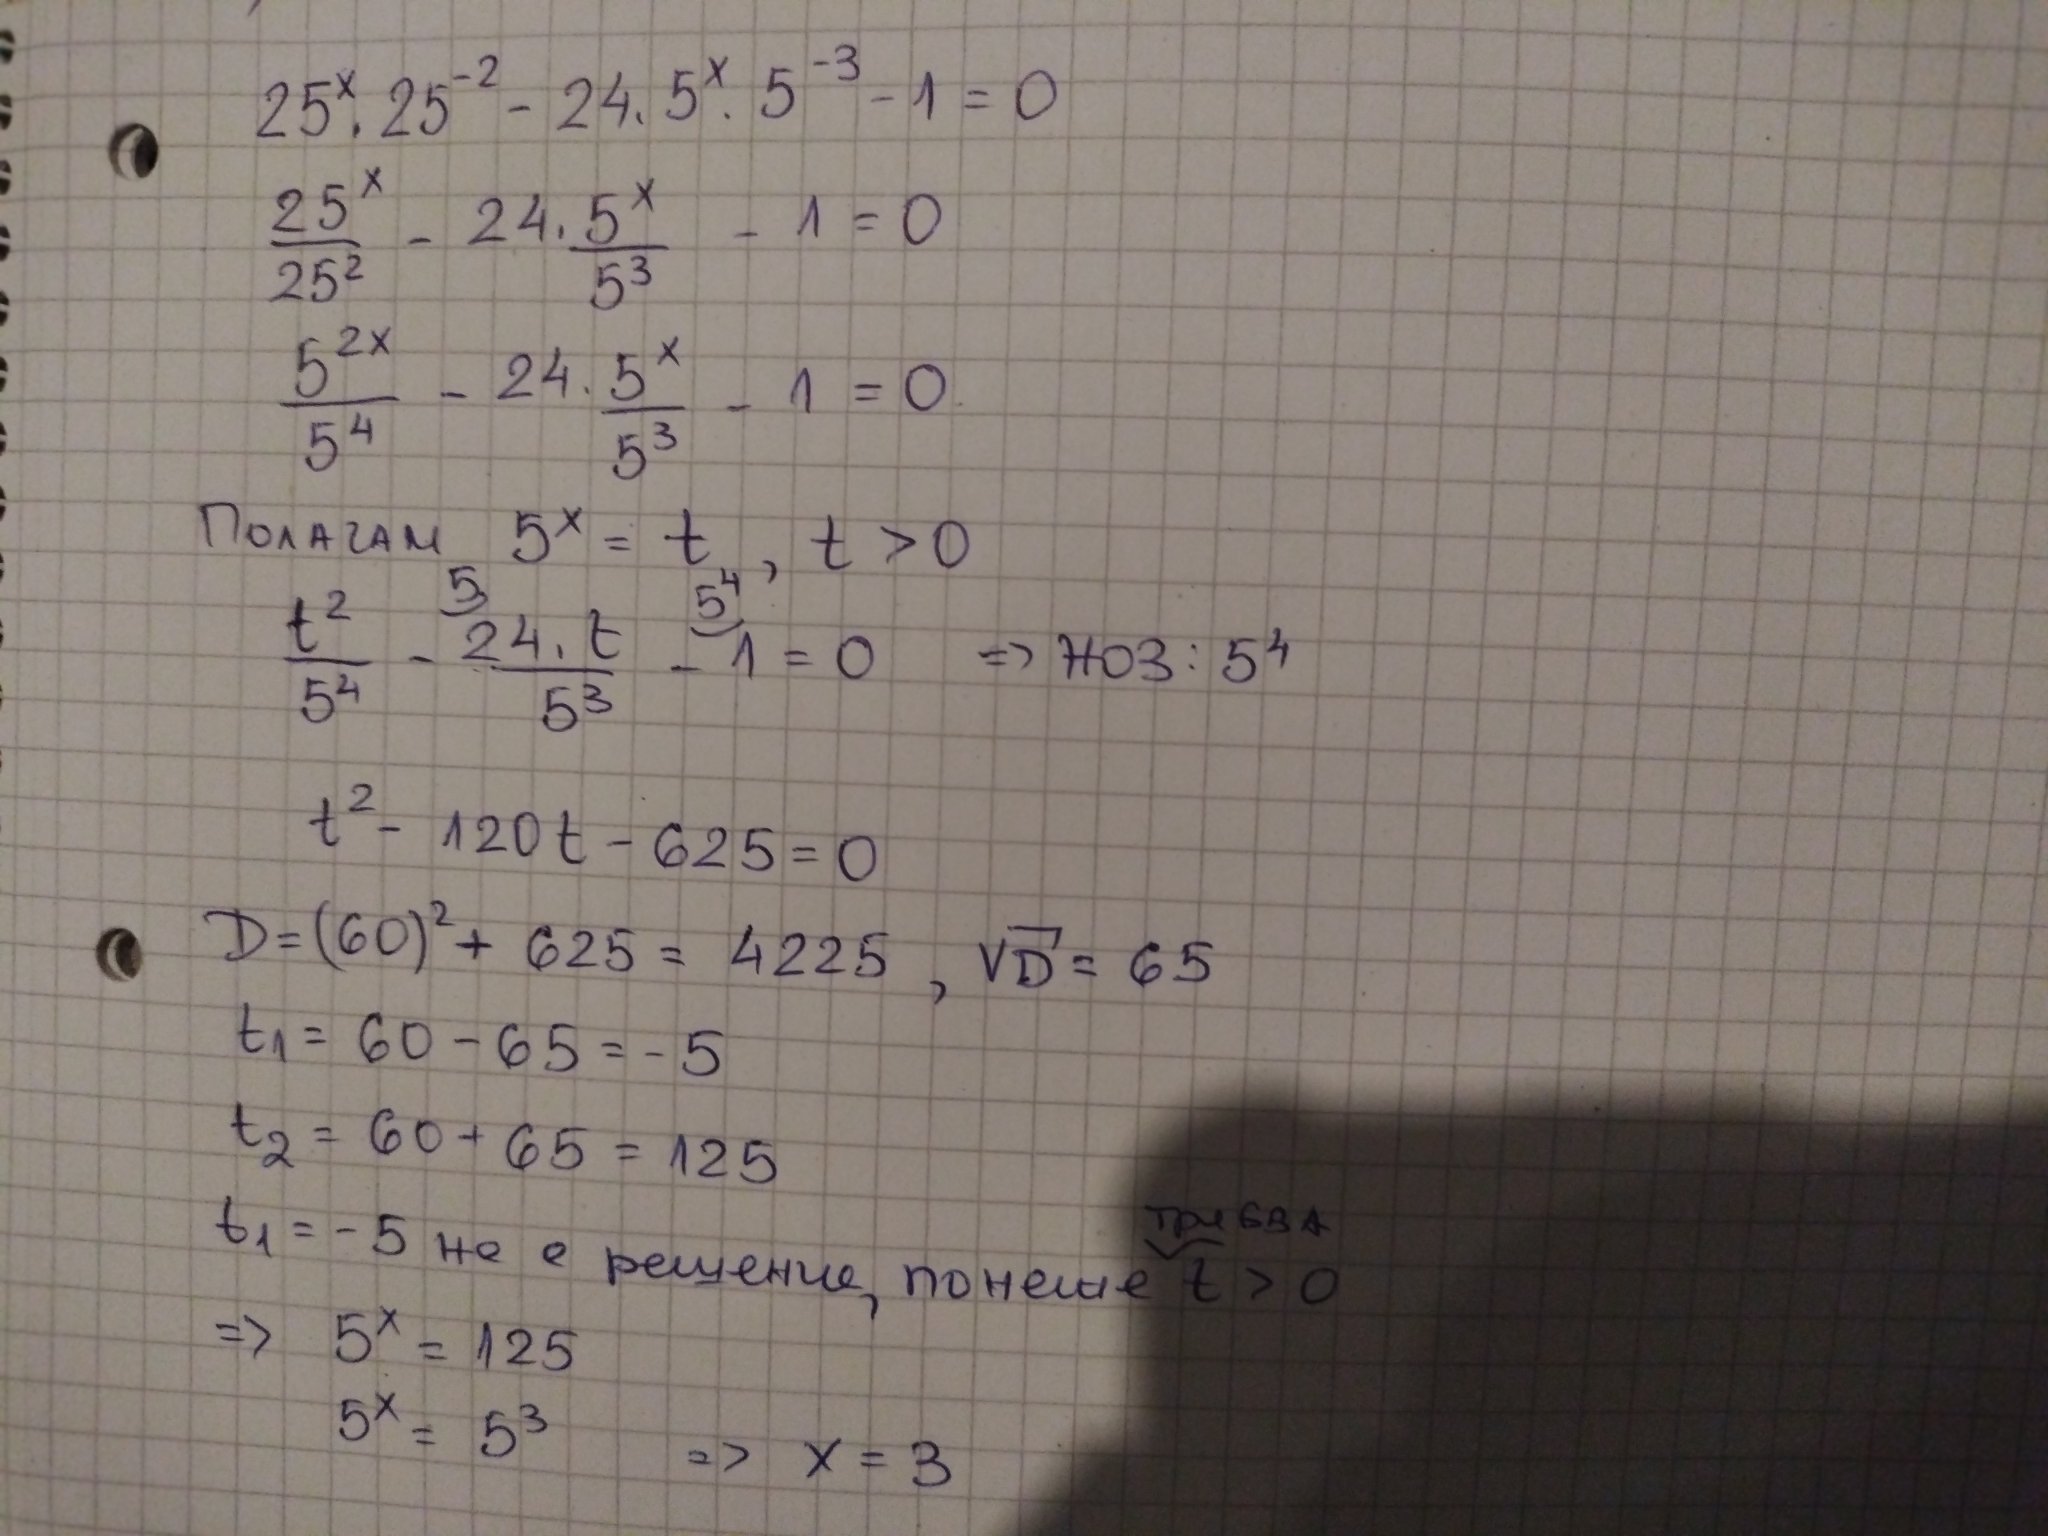 25ˣ.25⁻² - 24.5ˣ.5⁻³ - 1 = 0
25ˣ/25² - 24.5ˣ/5³ - 1 = 0
5²ˣ/5⁴ - 24.5ˣ/5³ - 1 = 0
Полагам 5ˣ = t, t > 0
5 5⁴
t²/5⁴ - 24.t/5³ - 1 = 0 => НОЗ: 5⁴
t² - 120t - 625 = 0
D = (60)² + 625 = 4225, √D = 65
t₁ = 60 - 65 = -5
t₂ = 60 + 65 = 125
трябва
t₁ = -5 не е решение, понеше t > 0
=> 5ˣ = 125
5ˣ = 5³ => x = 3